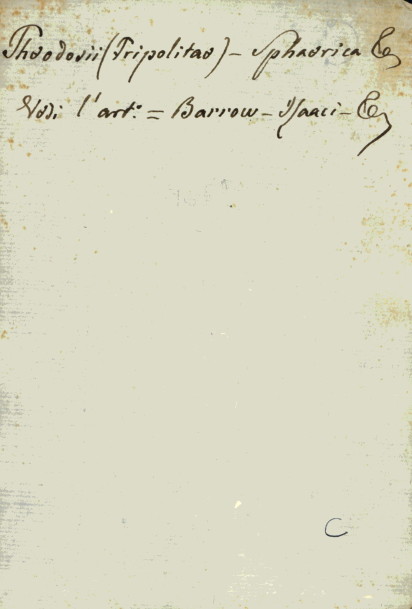 Theodosii (Tripolitae) - Sphaerica &
Vedi l'art.° = Barrow - Isaaci - &
C